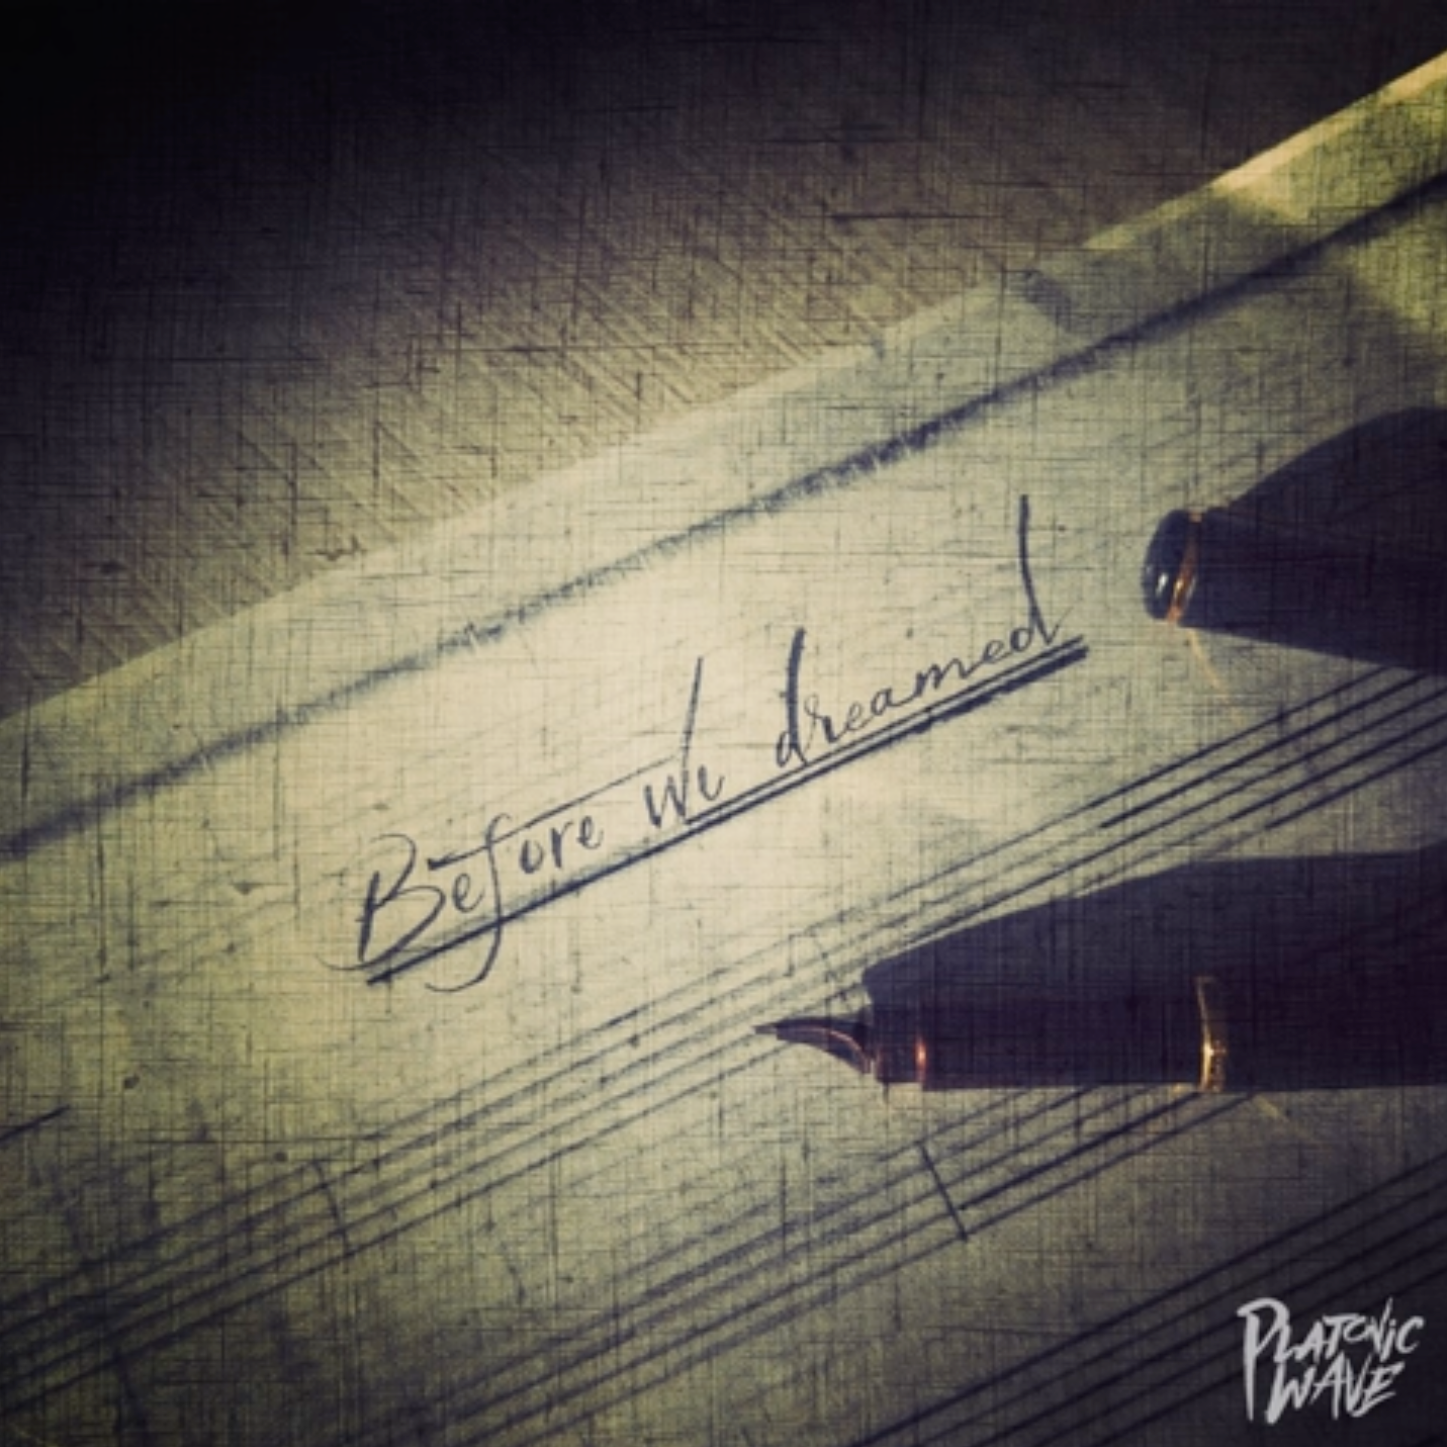 Before we dreamed
PLATONIC
WAVE